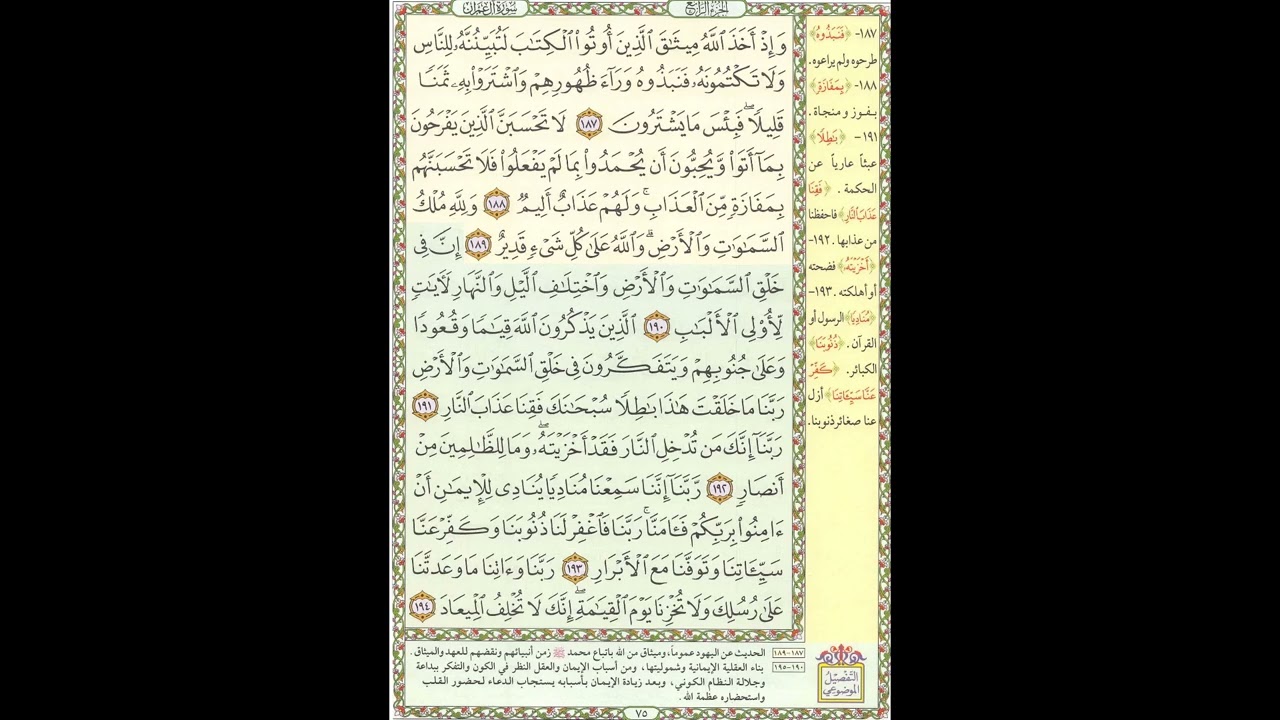 سورة آل عمران
الجزء الرابع
وَإِذْ أَخَذَ ٱللَّهُ مِيثَٰقَ ٱلَّذِينَ أُوتُوا۟ ٱلْكِتَٰبَ لَتُبَيِّنُنَّهُۥ لِلنَّاسِ
وَلَا تَكْتُمُونَهُۥ فَنَبَذُوهُ وَرَآءَ ظُهُورِهِمْ وَٱشْتَرَوْا۟ بِهِۦ ثَمَنًا
قَلِيلًا ۖ فَبِئْسَ مَا يَشْتَرُونَ ١٨٧ لَا تَحْسَبَنَّ ٱلَّذِينَ يَفْرَحُونَ
بِمَآ أَتَوا۟ وَّيُحِبُّونَ أَن يُحْمَدُوا۟ بِمَا لَمْ يَفْعَلُوا۟ فَلَا تَحْسَبَنَّهُم
بِمَفَازَةٍ مِّنَ ٱلْعَذَابِ ۖ وَلَهُمْ عَذَابٌ أَلِيمٌ ١٨٨ وَلِلَّهِ مُلْكُ
ٱلسَّمَٰوَٰتِ وَٱلْأَرْضِ ۗ وَٱللَّهُ عَلَىٰ كُلِّ شَىْءٍ قَدِيرٌ ١٨٩ إِنَّ فِى
خَلْقِ ٱلسَّمَٰوَٰتِ وَٱلْأَرْضِ وَٱخْتِلَٰفِ ٱلَّيْلِ وَٱلنَّهَارِ لَءَايَٰتٍ
لِّأُو۟لِى ٱلْأَلْبَٰبِ ١٩٠ ٱلَّذِينَ يَذْكُرُونَ ٱللَّهَ قِيَٰمًا وَقُعُودًا
وَعَلَىٰ جُنُوبِهِمْ وَيَتَفَكَّرُونَ فِى خَلْقِ ٱلسَّمَٰوَٰتِ وَٱلْأَرْضِ
رَبَّنَا مَا خَلَقْتَ هَٰذَا بَٰطِلًا سُبْحَٰنَكَ فَقِنَا عَذَابَ ٱلنَّارِ ١٩١
رَبَّنَآ إِنَّكَ مَن تُدْخِلِ ٱلنَّارَ فَقَدْ أَخْزَيْتَهُۥ ۖ وَمَا لِلظَّٰلِمِينَ مِنْ
أَنصَارٍ ١٩٢ رَّبَّنَآ إِنَّنَا سَمِعْنَا مُنَادِيًا يُنَادِى لِلْإِيمَٰنِ أَنْ
ءَامِنُوا۟ بِرَبِّكُمْ فَـَٔامَنَّا ۚ رَبَّنَا فَٱغْفِرْ لَنَا ذُنُوبَنَا وَكَفِّرْ عَنَّا
سَيِّـَٔاتِنَا وَتَوَفَّنَا مَعَ ٱلْأَبْرَارِ ١٩٣ رَبَّنَا وَءَاتِنَا مَا وَعَدتَّنَا
عَلَىٰ رُسُلِكَ وَلَا تُخْزِنَا يَوْمَ ٱلْقِيَٰمَةِ ۖ إِنَّكَ لَا تُخْلِفُ ٱلْمِيعَادَ ١٩٤
١٨٧- ﴿فَنَبَذُوهُ﴾
طرحوه ولم يراعوه.
١٨٨- ﴿بِمَفَازَةٍ﴾
بفوز ومنجاة.
١٩١- ﴿بَٰطِلًا﴾
عبثاً عارياً عن
الحكمة. ﴿فَقِنَا
عَذَابَ ٱلنَّارِ﴾ فاحفظنا
من عذابها. ١٩٢-
﴿أَخْزَيْتَهُۥ﴾ فضحته
أو أهلكته. ١٩٣-
﴿مُنَادِيًا﴾ الرسول أو
القرآن. ﴿ذُنُوبَنَا﴾
الكبائر. ﴿كَفِّرْ
عَنَّا سَيِّـَٔاتِنَا﴾ أزل
عنا صغائر ذنوبنا.
١٨٧-١٨٩ الحديث عن اليهود عموماً، وميثاق من الله باتباع محمد ﷺ زمن أنبيائهم ونقضهم للعهد والميثاق.
١٩٠-١٩٥ بناء العقلية الإيمانية وشموليتها، ومن أسباب الإيمان والعقل النظر في الكون والتفكر ببداعة
وجلالة النظام الكوني، وبعد زيادة الإيمان بأسبابه يستجاب الدعاء لحضور القلب
واستحضاره عظمة الله.
التفصيل
الموضوعي
٧٥